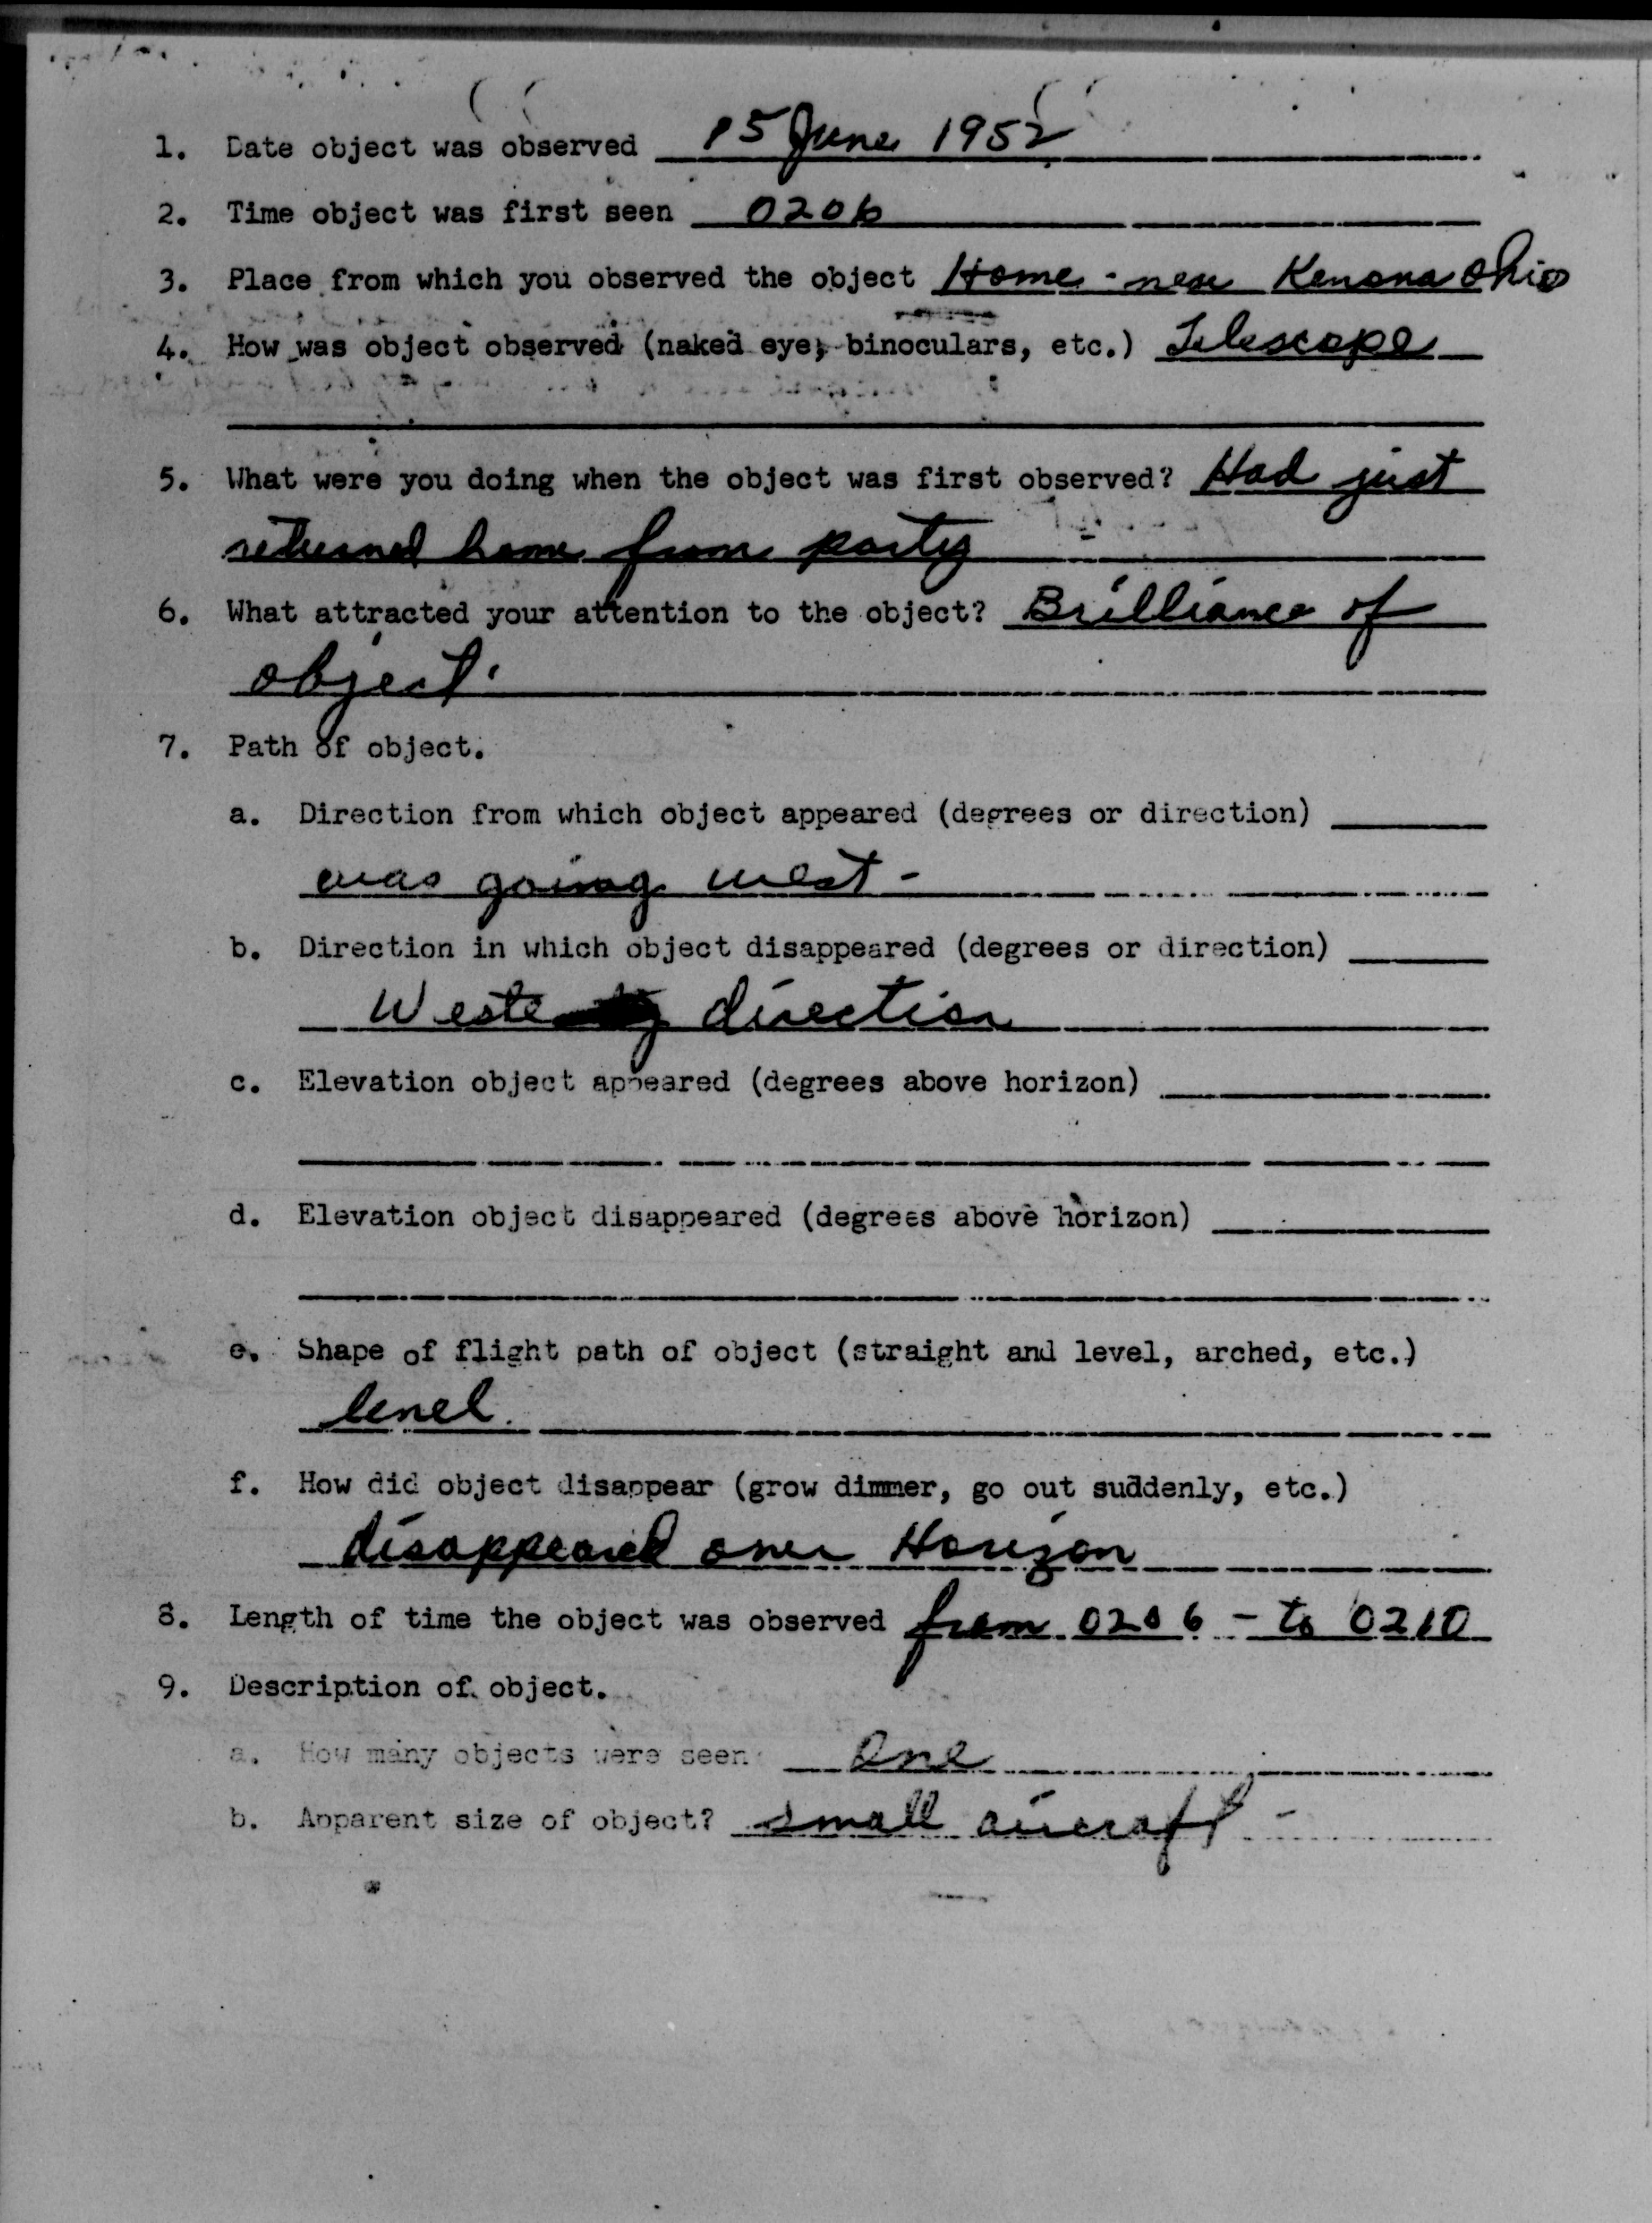 1. Date object was observed 15 June 1952
2. Time object was first seen 0206
3. Place from which you observed the object Home - near Kenona Ohio
4. How was object observed (naked eye, binoculars, etc.) Telescope
5. What were you doing when the object was first observed? Had just
returned home from party
6. What attracted your attention to the object? Brilliance of
object.
7. Path of object.
a. Direction from which object appeared (degrees or direction)
was going west -
b. Direction in which object disappeared (degrees or direction)
direction
c. Elevation object appeared (degrees above horizon)
d. Elevation object disappeared (degrees above horizon)
e. Shape of flight path of object (straight and level, arched, etc.)
level.
f. How did object disappear (grow dimmer, go out suddenly, etc.)
disappeared over Horizon
8. Length of time the object was observed from 0206 - to 0210
9. Description of object.
a. How many objects were seen One
b. Apparent size of object? small aircraft -